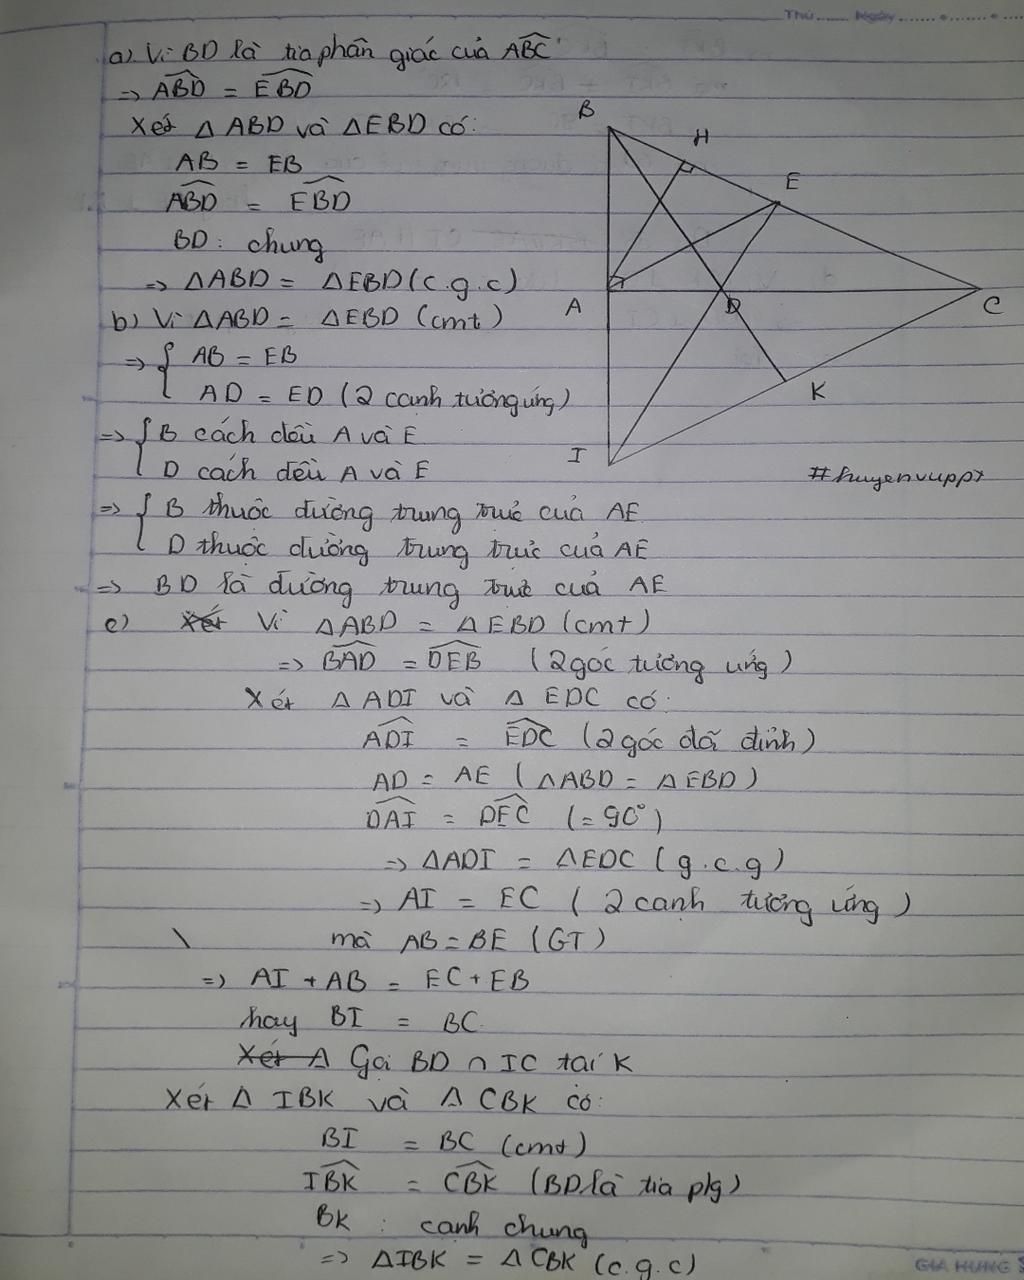 Thứ ...... Ngày ...............
a) Vì BD là tia phân giác của ABC
=> ABD = EBD
Xét Δ ABD và ΔEBD có:
AB = EB
ABD = EBD
BD: chung
=> ΔABD = ΔEBD (c.g.c)
b) Vì ΔABD = ΔEBD (cmt)
=> { AB = EB
AD = ED (2 canh tương ứng)
=> { B cách đều A và E
D cách đều A và E
=> { B thuộc đường trung trưc của AE
D thuộc đường trung trưc của AE
=> BD là đường trung trưc của AE
B
H
E
A
D
C
K
I
#huyenvuppt
c) Xét Vì ΔABD = ΔEBD (cmt)
=> BAD = DEB (2 góc tương ứng)
Xét Δ ADI và Δ EDC có:
ADI = EDC (2 góc đối đỉnh)
AD = AE (ΔABD = ΔEBD)
DAI = DEC (= 90°)
=> ΔADI = ΔEDC (g.c.g)
=> AI = EC (2 canh tương ứng)
mà AB = BE (GT)
=> AI + AB = EC + EB
hay BI = BC
Xét Δ Goi BD ∩ IC tai K
Xét Δ IBK và Δ CBK có:
BI = BC (cmt)
IBK = CBK (BD là tia p/g)
BK : canh chung
=> ΔIBK = ΔCBK (c.g.c)
GIA HUNG